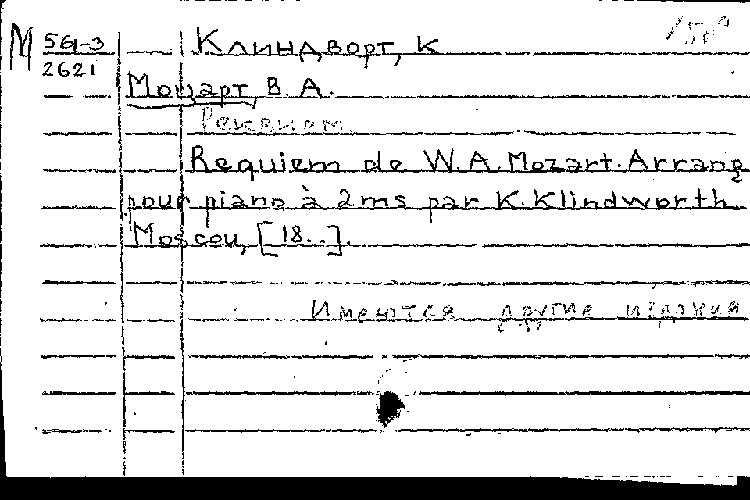 М 561-3 Клиндворт, К
2621
Моцарт, В. А.
Реквием.
Requiem de W.A.Mozart.Arrang
pour piano à 2ms par K.Klindworth
Moscou, [18..].
Имеются другие издания